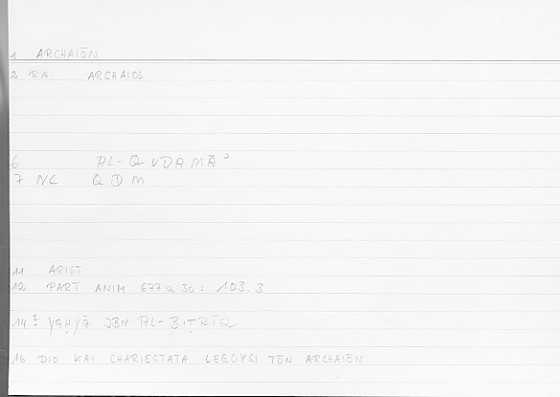 1 ARCHAIŌN
2 RA ARCHAIOS
6 AL-QUDAMĀʾ
7 NC QDM
11 ARIST
12 PART ANIM 677a30: 103.3
14 YAḤYĀ IBN AL-BIṬRĪQ
16 DIO KAI CHARIESTATA LEGOYSI TŌN ARCHAIŌN